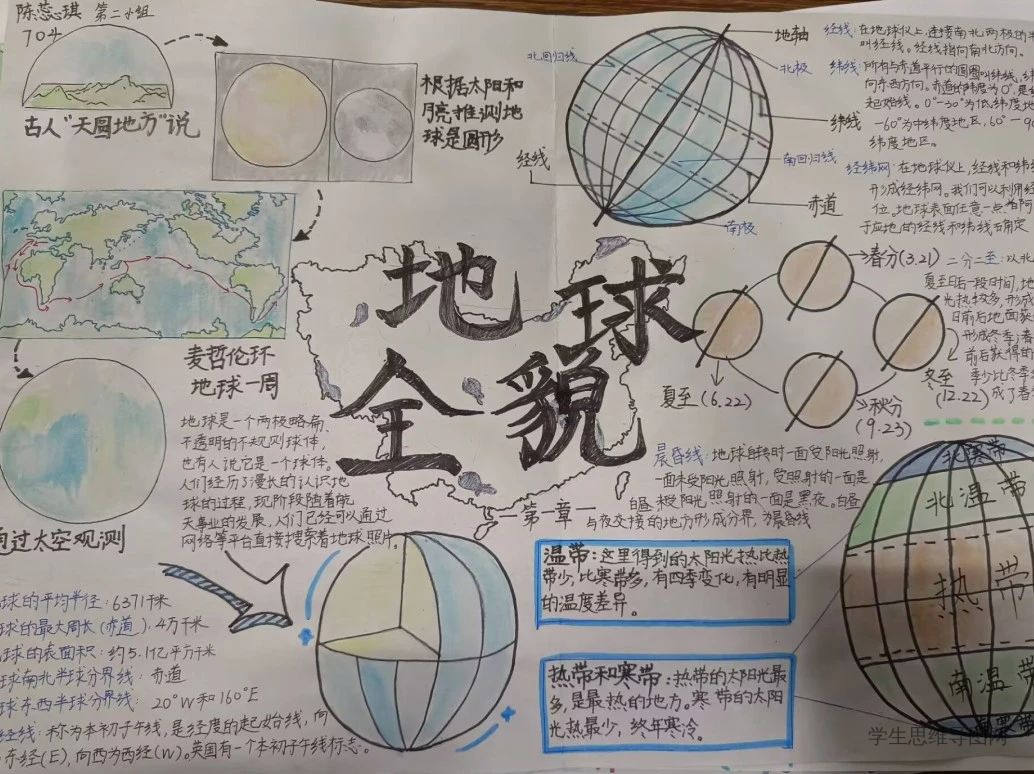 陈蕊琪 第二小组
704
古人“天圆地方”说
根据太阳和
月亮推测地
球是圆形
麦哲伦环
地球一周
通过太空观测
地球是一个两极略扁、
不透明的不规则球体,
也有人说它是一个球体。
人们经历了漫长的认识地
球的过程,现阶段随着航
天事业的发展,人们已经可以通过
网络等平台直接搜索看地球照片。
地球
全貌
第一章
北回归线
经线
地轴
北极
纬线
南回归线
赤道
南极
经线:在地球仪上,连接南北两极的
叫经线。经线指向南北方向。
纬线:所有与赤道平行的圆圈叫纬线,
向东西方向。赤道纬度为0°,是
起始线。0°-30°为低纬度地
-60°为中纬度地区,60°-90
纬度地区。
经纬网:在地球仪上,经线和纬线
形成经纬网。我们可以利用经
位。地球表面任意一点,
于应地的经线和纬线来确定
春分(3.21)
夏至(6.22)
秋分
(9.23)
冬至
(12.22)
二分二至:以北
夏至日后一段时间,地
光热较多,形成
日前后地面获
形成冬季;春
前后获得的
季少比冬季
成了春
晨昏线:地球自转时一面受阳光照射,
一面未受阳光照射,受照射的一面是
白昼,未受阳光照射的一面是黑夜。白昼
与夜交接的地方形成分界,为晨昏线
温带:这里得到的太阳光热比热
带少,比寒带多,有四季变化,有明显
的温度差异。
热带和寒带:热带的太阳光最
多,是最热的地方。寒带的太阳
光热最少,终年寒冷。
北寒带
北温带
热带
南温带
南寒带
球的平均半径:6371千米
球的最大周长(赤道):4万千米
球的表面积:约5.1亿平方千米
球南北半球分界线:赤道
球东西半球分界线:20°W和160°E
经线:称为本初子午线,是经度的起始线,向
东经(E),向西为西经(W)。英国有一个本初子午线标志。
学生思维导图网